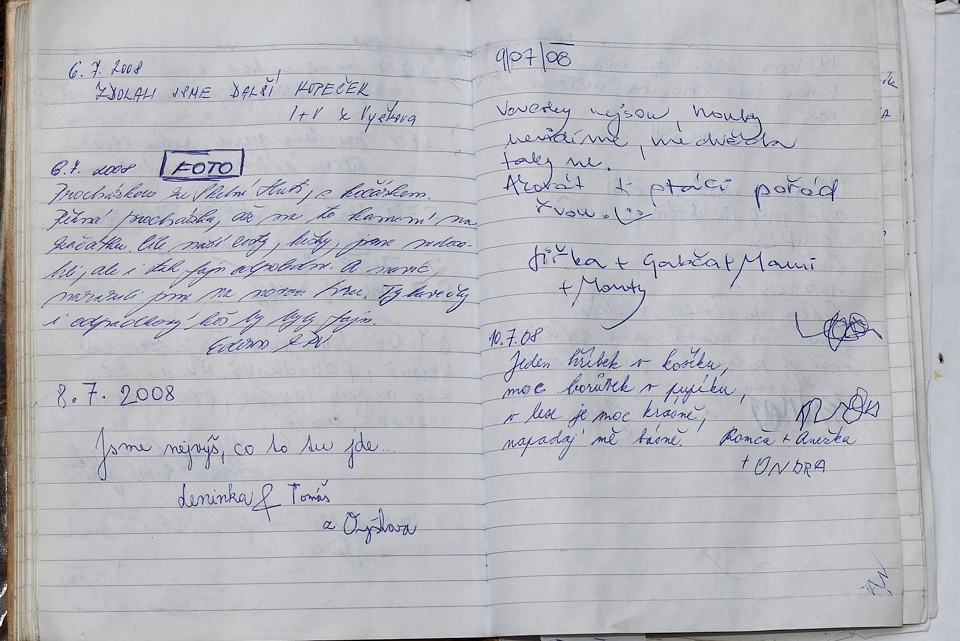 6.7. 2008
ZDOLALI JSME DALŠÍ KOPEČEK
I+V z Vyškova
6.7. 2008 FOTO
Procházkou ze Skelné Huti, s kočárkem.
Pěkná procházka, až na to kamení na
začátku. naší cesty, kešky, jsme nedoš-
li, ale i tak fajn odpoledne. A navíc,
narazili jsme na novou hru. Ty lavečky
i odpadkový koš by byly fajn.
8. 7. 2008
Jsme nejvýš, co to tu jde...
Leninka & Tomáš
z Vyškova
9/07/08
Veverky nejsou, houby
nevidíme, medvěda
taky ne.
Akorát ti ptáci pořád
řvou.
Jiřka + Gabča + Mami
+ Monty
10.7.08
Jeden hříbek v košíku,
moc borůvek v pupíku,
v lese je moc krásně,
napadaj mě básně.
Romča + Anežka
+ ONDRA